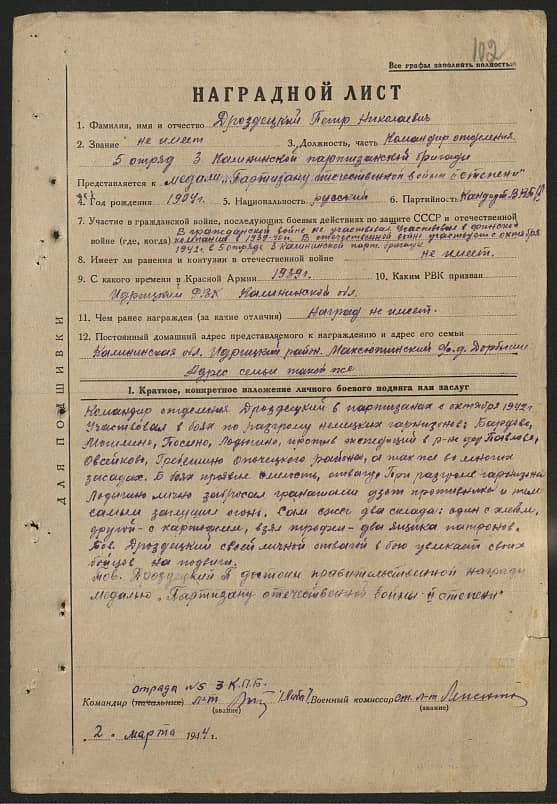 102
Все графы заполнять полностью
НАГРАДНОЙ ЛИСТ
1. Фамилия, имя и отчество Дроздецкий Петр Николаевич
2. Звание не имеет 3. Должность, часть Командир отделения
5 отряд 3 Калининской партизанской бригады
Представляется к медали „Партизану отечественной войны II степени"
4. Год рождения 1904г. 5. Национальность русский 6. Партийность Кандидат ВКП(б)
7. Участие в гражданской войне, последующих боевых действиях по защите СССР и отечественной
войне (где, когда) В гражданской войне не участвовал. Участвовал в финской
кампании в 1939-40г. В отечественной войне участвует с октября
1942г. в 5 отряде 3 Калининской парт. бригады
8. Имеет ли ранения и контузии в отечественной войне не имеет.
9. С какого времени в Красной Армии 1939г. 10. Каким РВК призван
Идрицким РВК Калининской обл.
11. Чем ранее награжден (за какие отличия) Наград не имеет.
12. Постоянный домашний адрес представляемого к награждению и адрес его семьи
Калининская обл. Идрицкий район, Максютинский с/с д.
Адрес семьи такой же
I. Краткое, конкретное изложение личного боевого подвига или заслуг
Командир отделения Дроздецкий в партизанах с октября 1942г.
Участвовал в боях по разгрому немецких гарнизонов:
Могилино, Посино, Лодыгино, против экспедиций в р-не дер. Павлово,
Овсейково, Гребешно Опочецкого района, а так же во многих
засадах. В боях проявил смелость, отвагу. При разгроме гарнизона
Лодыгино лично забросал гранатами дзот противника и тем
самым заглушил огонь. Сам сжег два склада: один с хлебом,
другой - с картофелем, взял трофеи - два ящика патронов.
Тов. Дроздецкий своей личной отвагой в бою увлекает своих
бойцов на подвиги.
Тов. Дроздецкий П достоин правительственной награды
медалью „Партизану отечественной войны II степени"
отряда №5 3 К.П.Б.
Командир (начальник) л-т Военный комиссар ст. л-т
(звание) (звание)
2. марта 1944 г.
ДЛЯ ПОДШИВКИ